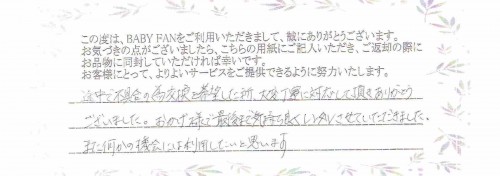 この度は、BABY FANをご利用いただきまして、誠にありがとうございます。
お気づきの点がございましたら、こちらの用紙にご記入いただき、ご返却の際に
お品物に同封していただければ幸いです。
お客様にとって、よりよいサービスをご提供できるように努力いたします。
途中で不具合の為交換を希望した所、大変丁寧に対応して頂きありがとう
ございました。おかげ様で最後まで気持ち良くレンタルさせていただきました。
また何かの機会には利用したいと思います